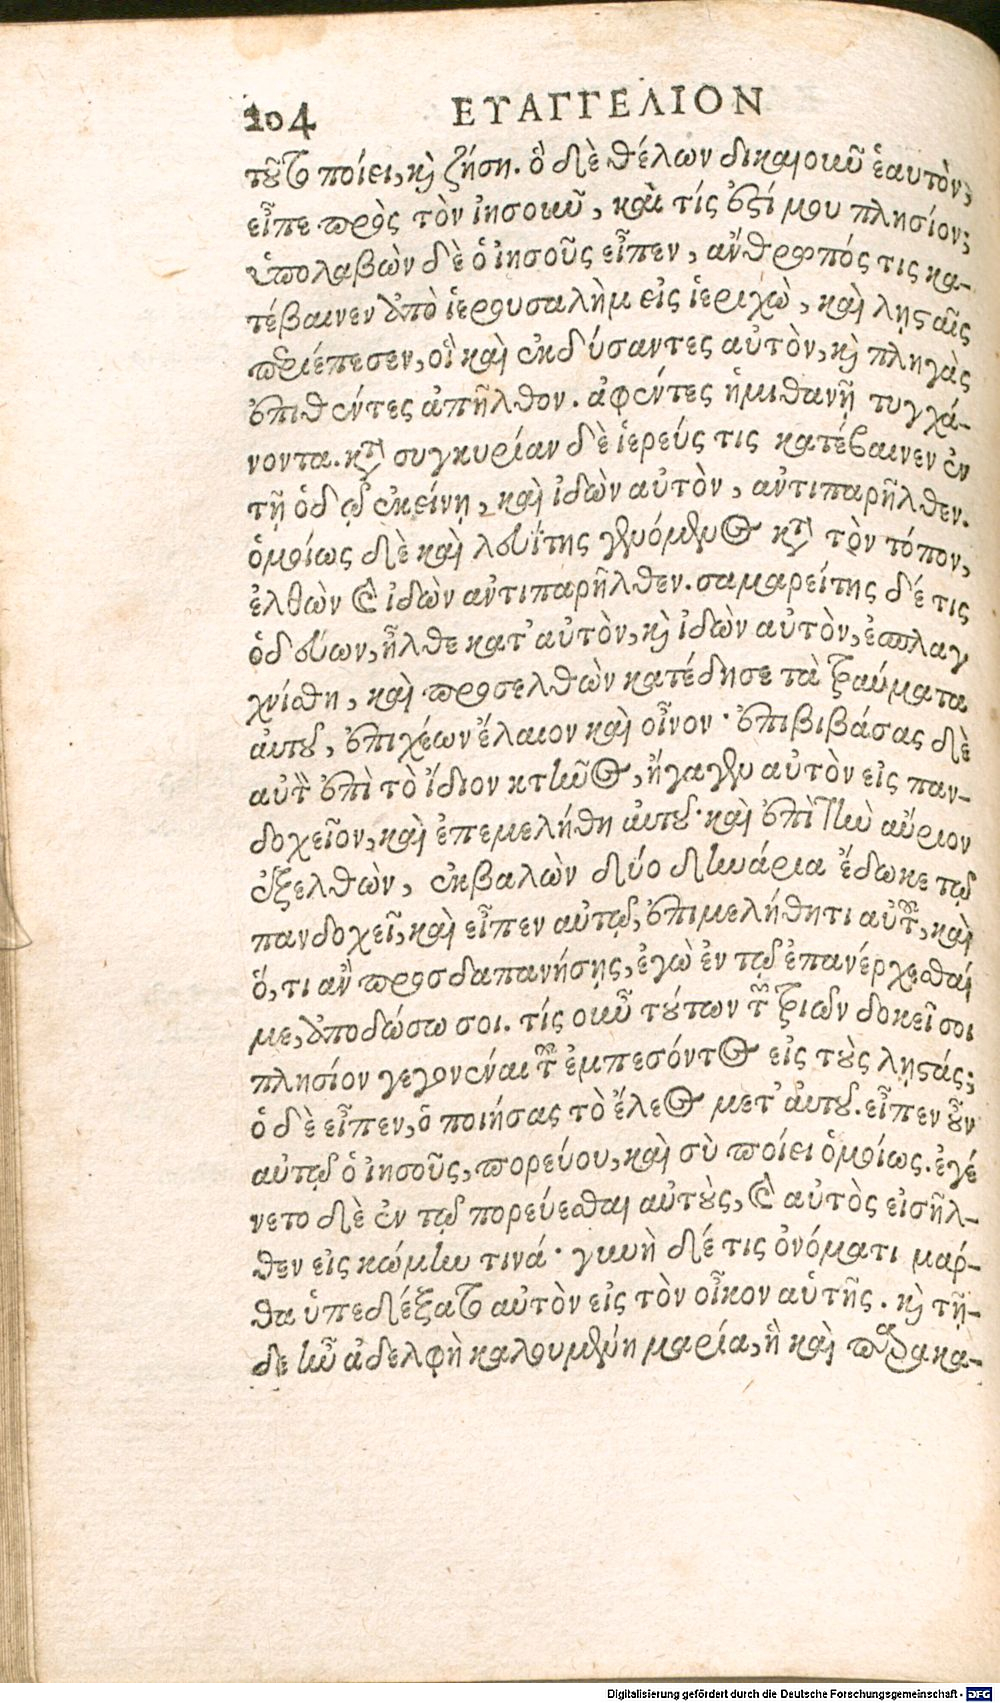 204 ΕΥΑΓΓΕΛΙΟΝ
τοῦτο ποίει, καὶ ζήσῃ. ὁ δὲ θέλων δικαιοῦν ἑαυτὸν,
εἶπε πρὸς τὸν ἰησοῦν, καὶ τίς ἐστί μου πλησίον;
ὑπολαβὼν δὲ ὁ ἰησοῦς εἶπεν, ἄνθρωπός τις κα-
τέβαινεν ἀπὸ ἱερουσαλὴμ εἰς ἱεριχὼ, καὶ λῃσταῖς
περιέπεσεν, οἳ καὶ ἐκδύσαντες αὐτὸν, καὶ πληγὰς
ἐπιθέντες ἀπῆλθον. ἀφέντες ἡμιθανῆ τυγχά-
νοντα. κατὰ συγκυρίαν δὲ ἱερεύς τις κατέβαινεν ἐν
τῇ ὁδῷ ἐκείνῃ, καὶ ἰδὼν αὐτὸν, ἀντιπαρῆλθεν.
ὁμοίως δὲ καὶ λευΐτης γενόμενος κατὰ τὸν τόπον,
ἐλθὼν καὶ ἰδὼν ἀντιπαρῆλθεν. σαμαρείτης δέ τις
ὁδεύων, ἦλθε κατ' αὐτὸν, καὶ ἰδὼν αὐτὸν, ἐσπλαγ
χνίσθη, καὶ προσελθὼν κατέδησε τὰ τραύματα
αὐτοῦ, ἐπιχέων ἔλαιον καὶ οἶνον· ἐπιβιβάσας δὲ
αὐτὸν ἐπὶ τὸ ἴδιον κτῆνος, ἤγαγεν αὐτὸν εἰς παν-
δοχεῖον, καὶ ἐπεμελήθη αὐτοῦ· καὶ ἐπὶ τὴν αὔριον
ἐξελθὼν, ἐκβαλὼν δύο δηνάρια ἔδωκε τῷ
πανδοχεῖ, καὶ εἶπεν αὐτῷ, ἐπιμελήθητι αὐτοῦ, καὶ
ὅ,τι ἂν προσδαπανήσῃς, ἐγὼ ἐν τῷ ἐπανέρχεσθαί
με, ἀποδώσω σοι. τίς οὖν τούτων τῶν τριῶν δοκεῖ σοι
πλησίον γεγονέναι τοῦ ἐμπεσόντος εἰς τοὺς λῃστάς;
ὁ δὲ εἶπεν, ὁ ποιήσας τὸ ἔλεος μετ' αὐτοῦ. εἶπεν οὖν
αὐτῷ ὁ ἰησοῦς, πορεύου, καὶ σὺ ποίει ὁμοίως. ἐγέ
νετο δὲ ἐν τῷ πορεύεσθαι αὐτοὺς, καὶ αὐτὸς εἰσῆλ-
θεν εἰς κώμην τινά· γυνὴ δέ τις ὀνόματι μάρ-
θα ὑπεδέξατο αὐτὸν εἰς τὸν οἶκον αὑτῆς. καὶ τῇ-
δε ἦν ἀδελφὴ καλουμένη μαρία, ἣ καὶ παρακα-
Digitalisierung gefördert durch die Deutsche Forschungsgemeinschaft - DFG